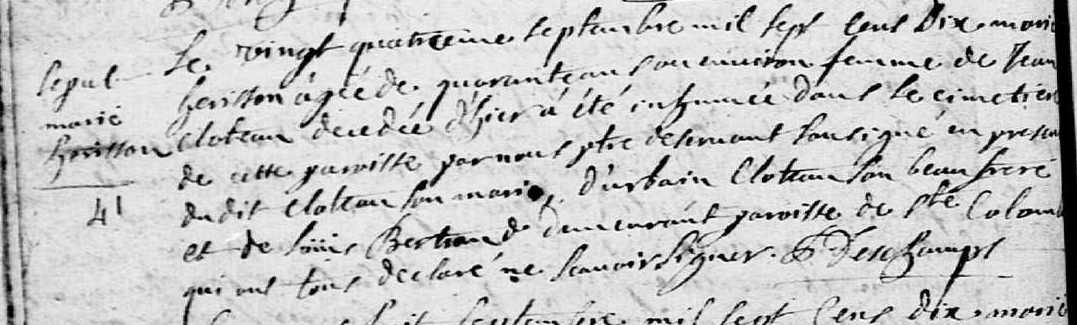 Le vingt quatreeime septembre mil sept cens Dix marie
sepul
herisson agéé de quarante ans ou environ femme de Jean
marie
herisson
cloteau decedéé d'hier à été inhumée dans le cimetiere
de cette paroisse par nous ptre deservant sousigné en presen
41
dudit cloteau son mari, d'urbain Cloteau son beau frere
et de Loüis Bertrand demeurant paroisse de Ste Colom
qui ont tous declaré ne scavoir signer. Deschamps
septembre mil sept cens dix marie